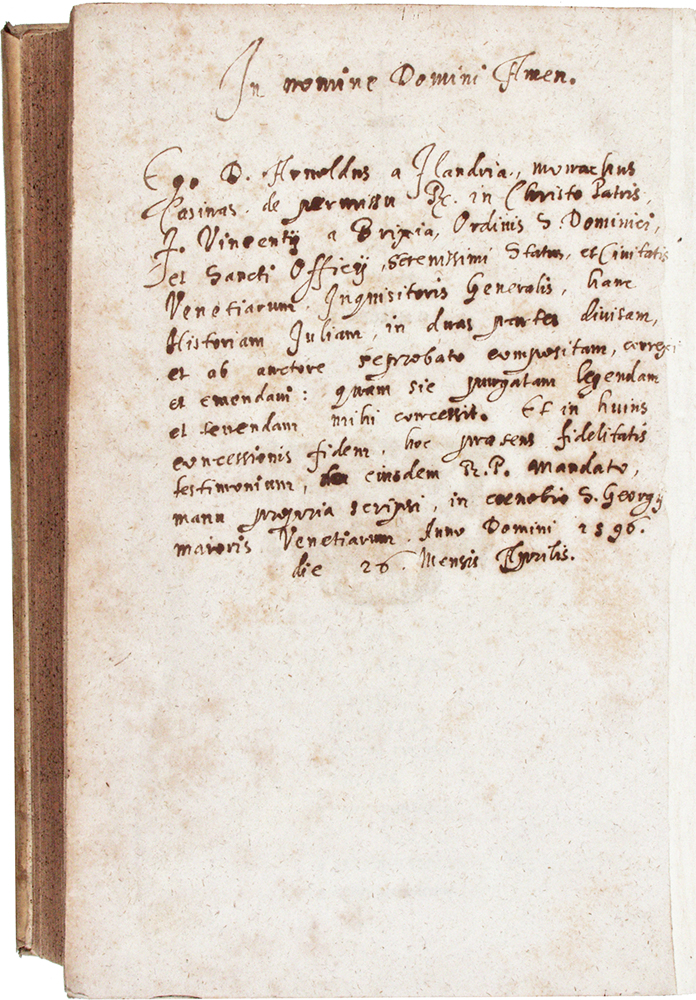 In nomine Domini Amen.
Ego D. Arnoldus a Flandria, monachus
Casinas. de permissu R. in Christo Patris,
F. Vincentij a Brixia, Ordinis S Dominici,
et Sancti Officij, Serenissimi Status, et Civitatis
Venetiarum Inquisitoris Generalis, hanc
Historiam Iuliam, in duas partes divisam,
et ab auctore reprobato compositam, correxi
et emendavi: quam sic purgatam legendam
et tenendam mihi concessit. Et in huius
concessionis fidem, hoc praesens fidelitatis
testimonium, eiusdem R. P. mandato,
manu propria scripsi, in coenobio S. Georgij
maioris Venetiarum. Anno Domini 1596.
die 26. Mensis Aprilis.